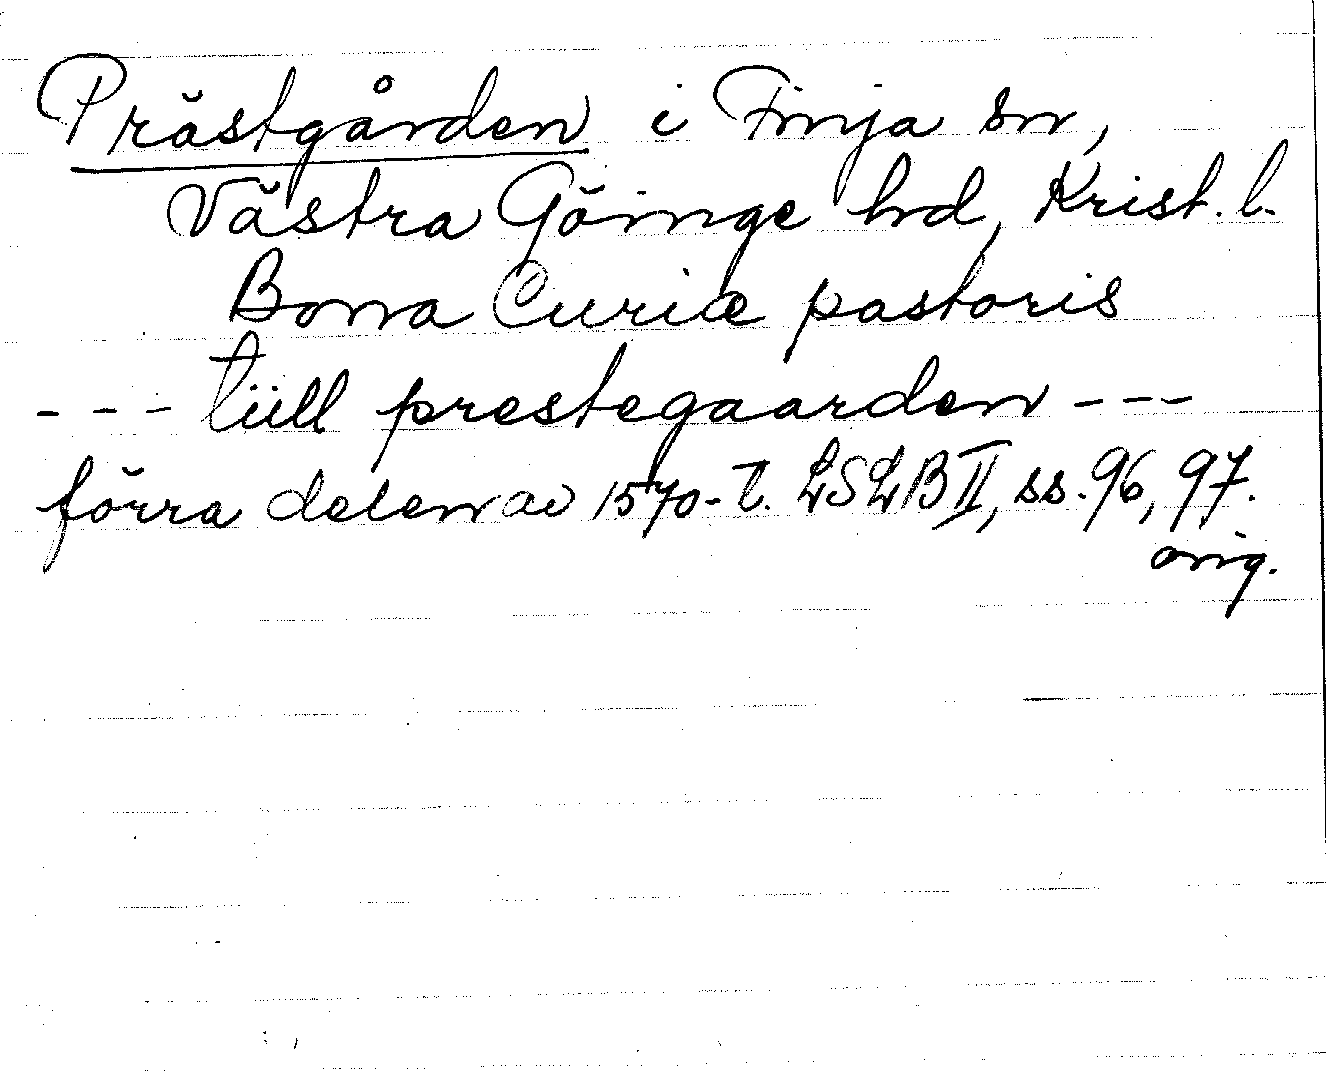 Prästgården i Finja sn,
Västra Göinge hd, Krist. l.
Bona Curiæ pastoris
- - - tiill prestegaarden - - -
förra delen av 1570-t. LSLB II, ss. 96, 97.
orig.